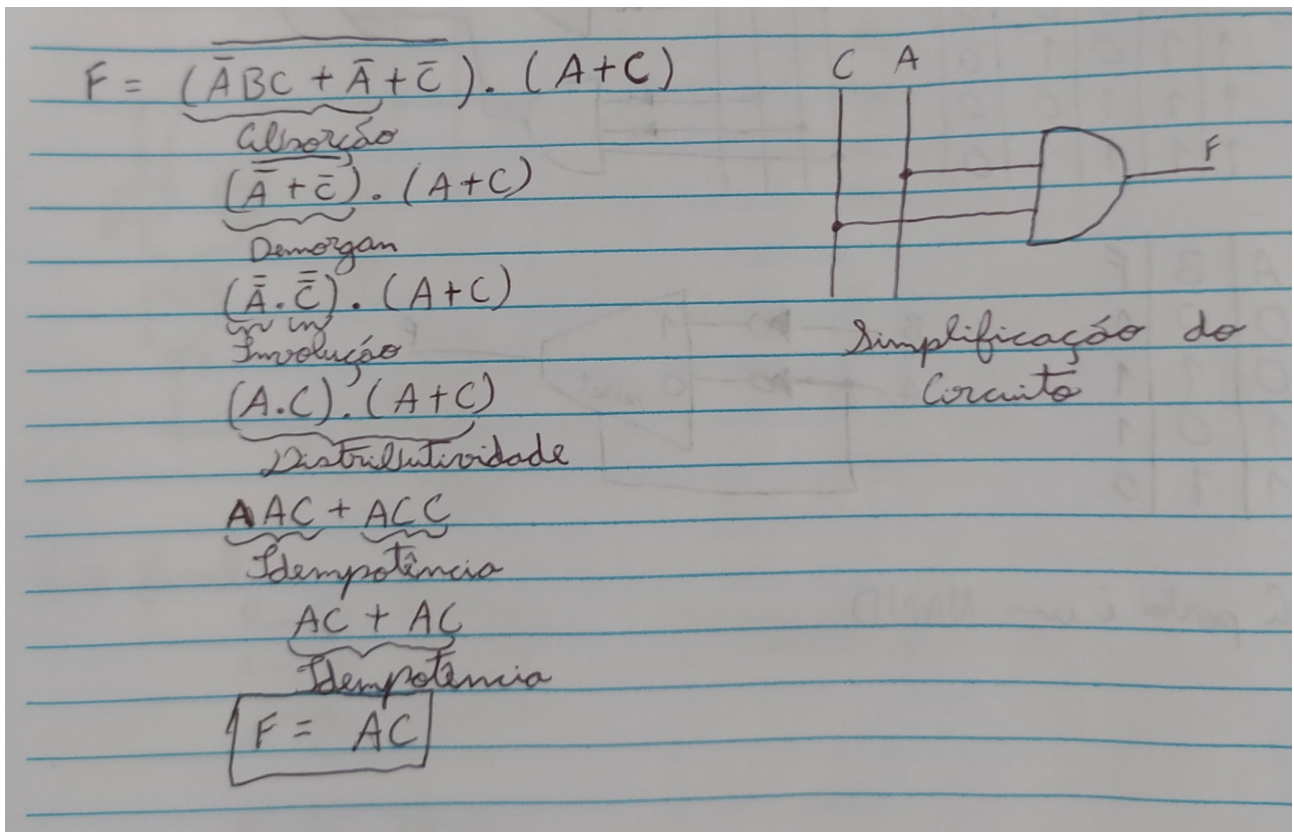 F = (A̅BC + A̅ + C̅) . (A+C)
absorção
(A̅ + C̅) . (A+C)
Demorgan
(A̿ . C̿) . (A+C)
Involução
(A.C) . (A+C)
Distributividade
AAC + ACC
Idempotência
AC + AC
Idempotência
F = AC
C A
F
Simplificação do
Circuito